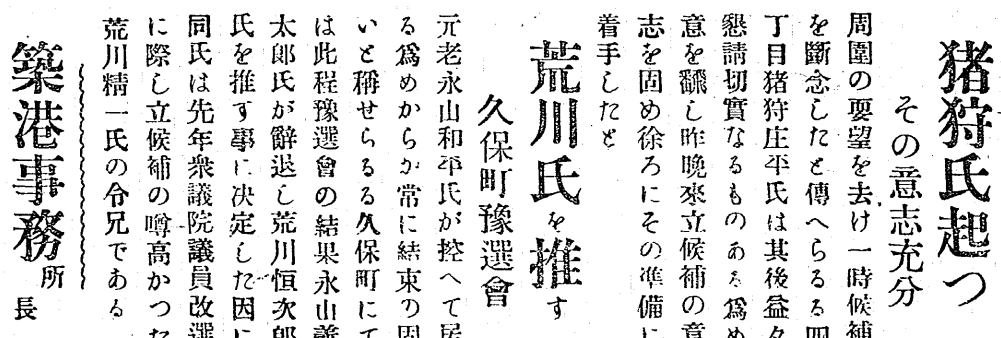 猪狩氏起つ
その意志充分
周圍の要望を去け一時候補
を斷念したと傳へらるる四
丁目猪狩庄平氏は其後益々
懇請切實なるものある爲め
意を飜し昨晩來立候補の意
志を固め徐ろにその準備に
着手したと
荒川氏を推す
久保町豫選會
元老永山和平氏が控へて居
る爲めからか常に結束の固
いと稱せらるる久保町にて
は此程豫選會の結果永山
太郎氏が辭退し荒川恒次郎
氏を推す事に决定した因に
同氏は先年衆議院議員改選
に際し立候補の噂高かつた
荒川精一氏の令兄である
築港事務所長